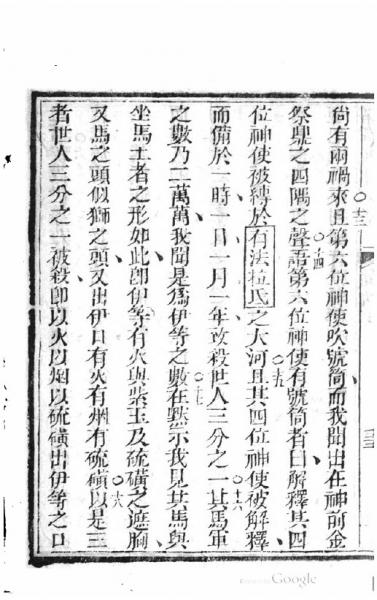 尙有兩禍來且○十三第六位神使吹號筒而我聞出在神前金
祭鼎之四隅之聲○十四語第六位神使有號筒者曰解釋其四
位神使被縛於有法拉氐之大河○十五且其四位神使被解釋
而備於一時一日一月一年致殺世人三分之一○十六其馬軍
之數乃二萬萬我聞是爲伊等之數○十七在默示我見其馬與
坐馬士者之形如此卽伊等有火與紫玉及硫磺之遮胸
又馬之頭似獅之頭又出伊口有火有烟有硫磺○十八以是三
者世人三分之一被殺卽以火以烟以硫磺出伊等之口
Google